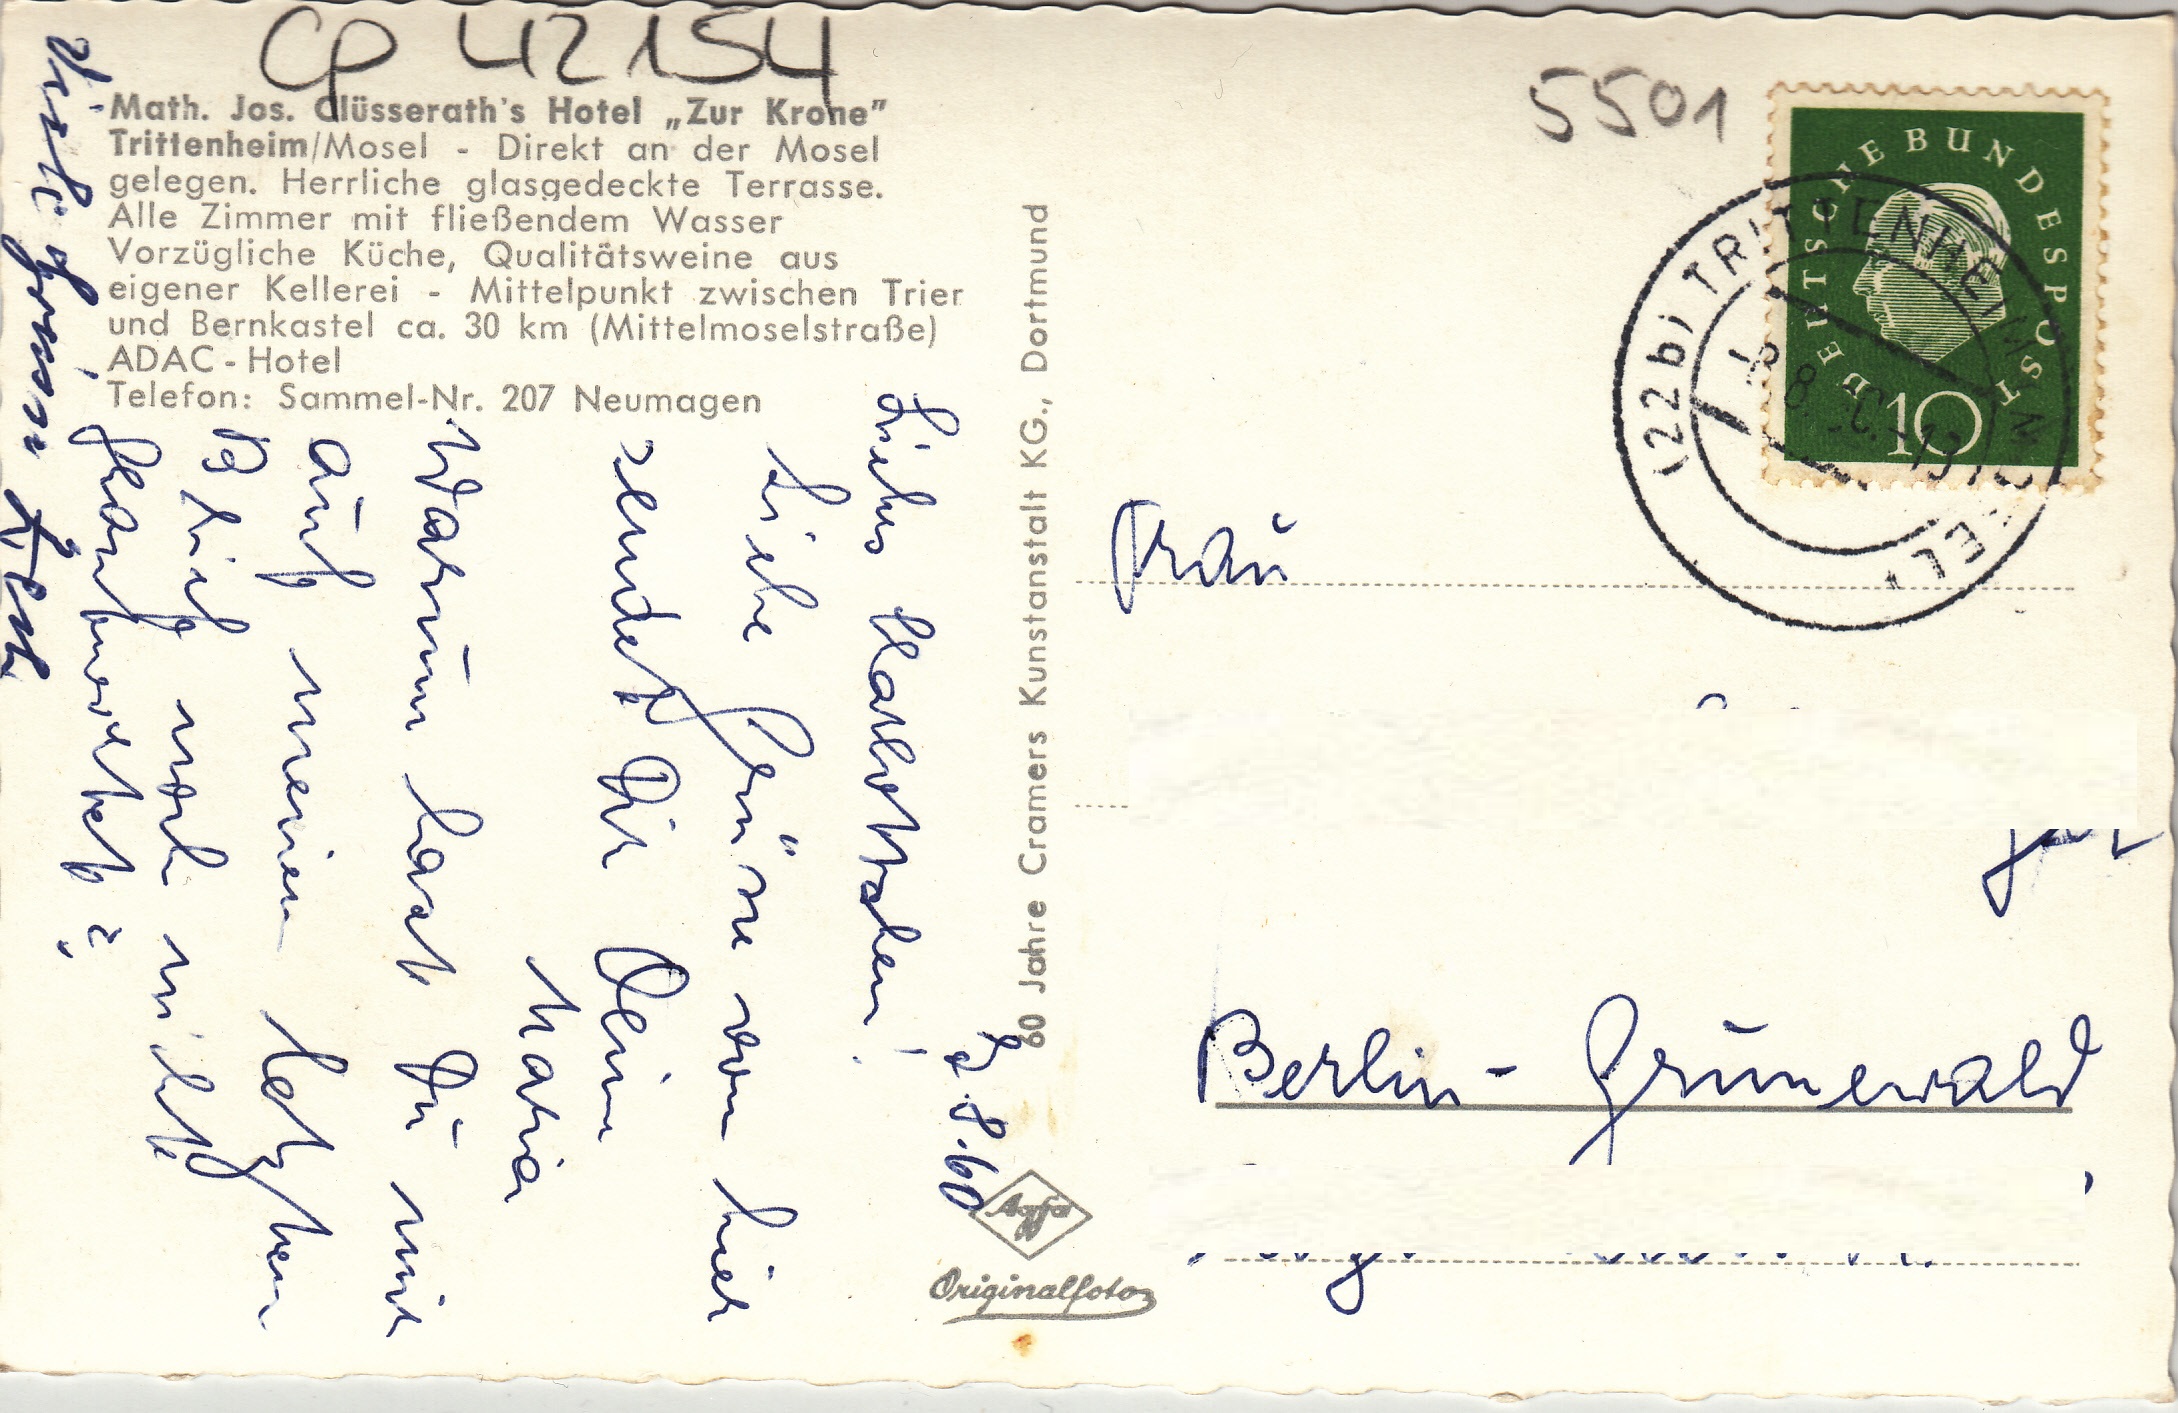 CP 42154
5501
Math. Jos. Clüsserath's Hotel „Zur Krone”
Trittenheim/Mosel - Direkt an der Mosel
gelegen. Herrliche glasgedeckte Terrasse.
Alle Zimmer mit fließendem Wasser
Vorzügliche Küche, Qualitätsweine aus
eigener Kellerei - Mittelpunkt zwischen Trier
und Bernkastel ca. 30 km (Mittelmoselstraße)
ADAC-Hotel
Telefon: Sammel-Nr. 207 Neumagen
8.60
Liebes
Liebe Grüsse von hier
sendet Dir Deine
Maria
Warum hast Du mir
auf meinen letzten
Brief noch nicht
geantwortet?
Viele
60 Jahre Cramers Kunstanstalt KG., Dortmund
Agfa
Originalfoto
DEUTSCHE BUNDESPOST
10
(22b) TRITTENHEIM
Frau
Berlin-Grunewald